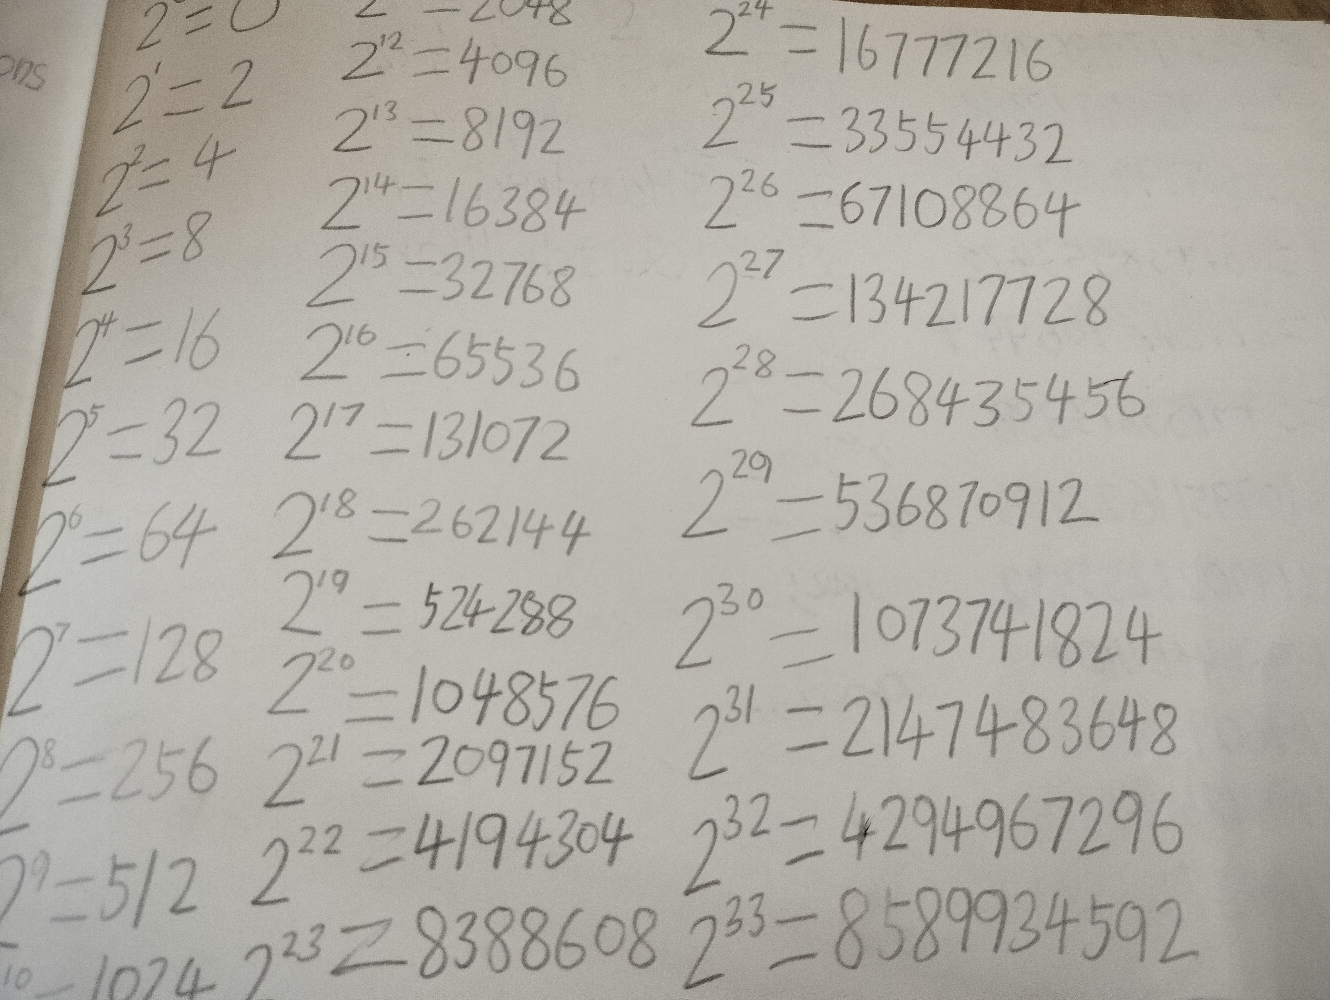 ons
2⁰=0
2¹=2
2²=4
2³=8
2⁴=16
2⁵=32
2⁶=64
2⁷=128
2⁸=256
2⁹=512
10=1024
2 =2048
2¹²=4096
2¹³=8192
2¹⁴=16384
2¹⁵=32768
2¹⁶=65536
2¹⁷=131072
2¹⁸=262144
2¹⁹=524288
2²⁰=1048576
2²¹=2097152
2²²=4194304
2²³=8388608
2²⁴=16777216
2²⁵=33554432
2²⁶=67108864
2²⁷=134217728
2²⁸=268435456
2²⁹=536870912
2³⁰=1073741824
2³¹=2147483648
2³²=4294967296
2³³=8589934592